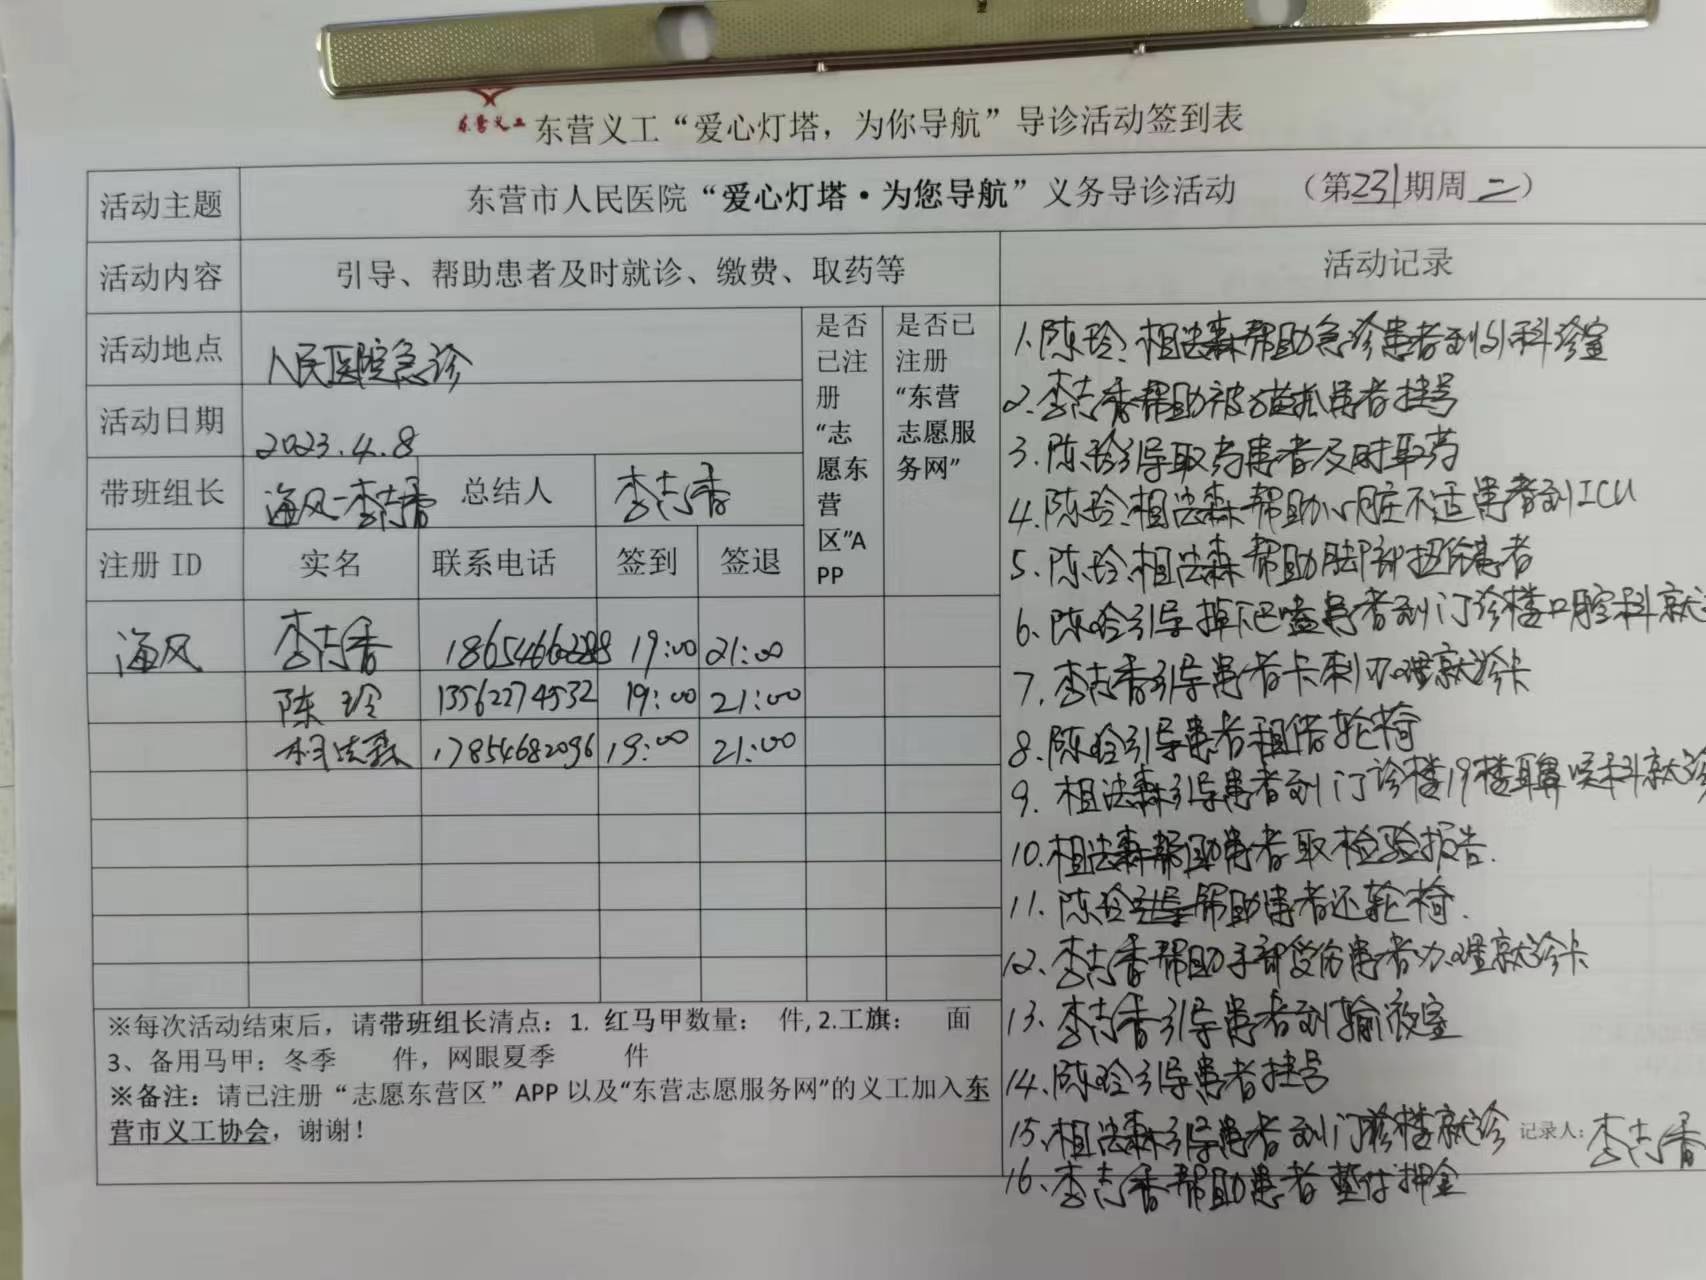 东营义工
东营义工“爱心灯塔，为你导航”导诊活动签到表
活动主题
东营市人民医院“爱心灯塔·为您导航”义务导诊活动 （第231期周二）
活动内容
引导、帮助患者及时就诊、缴费、取药等
活动记录
活动地点
人民医院急诊
是否已注册“志愿东营区”APP
是否已注册“东营志愿服务网”
活动日期
2023.4.8
带班组长
海风-李志香
总结人
李志香
注册 ID 实名 联系电话 签到 签退
海风 李志香 18654660288 19:00 21:00
陈玲 13562274532 19:00 21:00
相法森 17854682096 19:00 21:00
1.陈玲、相法森帮助急诊患者到外科诊室
2.李志香帮助被猫抓患者挂号
3.陈玲引导取药患者及时取药
4.陈玲、相法森帮助心脏不适患者到ICU
5.陈玲、相法森帮助脚部扭伤患者
6.陈玲引导掉下巴患者到门诊楼口腔科就
7.李志香引导患者卡刺办理就诊卡
8.陈玲引导患者租借轮椅
9.相法森引导患者到门诊楼19楼耳鼻喉科就诊
10.相法森帮助患者取检验报告.
11.陈玲帮助患者还轮椅.
12.李志香帮助手部受伤患者办理就诊卡
13、李志香引导患者到输液室
14.陈玲引导患者挂号
15.相法森引导患者到门诊楼就诊
16、李志香帮助患者垫付押金
记录人：李志香
※每次活动结束后，请带班组长清点：1. 红马甲数量： 件, 2.工旗： 面
3、备用马甲：冬季 件，网眼夏季 件
※备注：请已注册“志愿东营区”APP 以及“东营志愿服务网”的义工加入东
营市义工协会，谢谢！